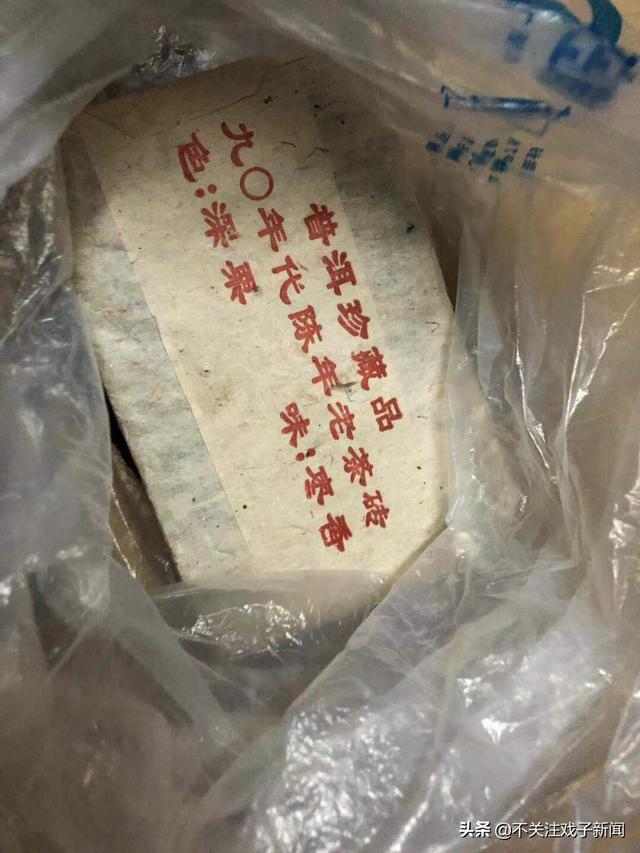 普洱珍藏品
九〇年代陈年老茶砖
色:深栗 味:枣香
头条 @不关注戏子新闻